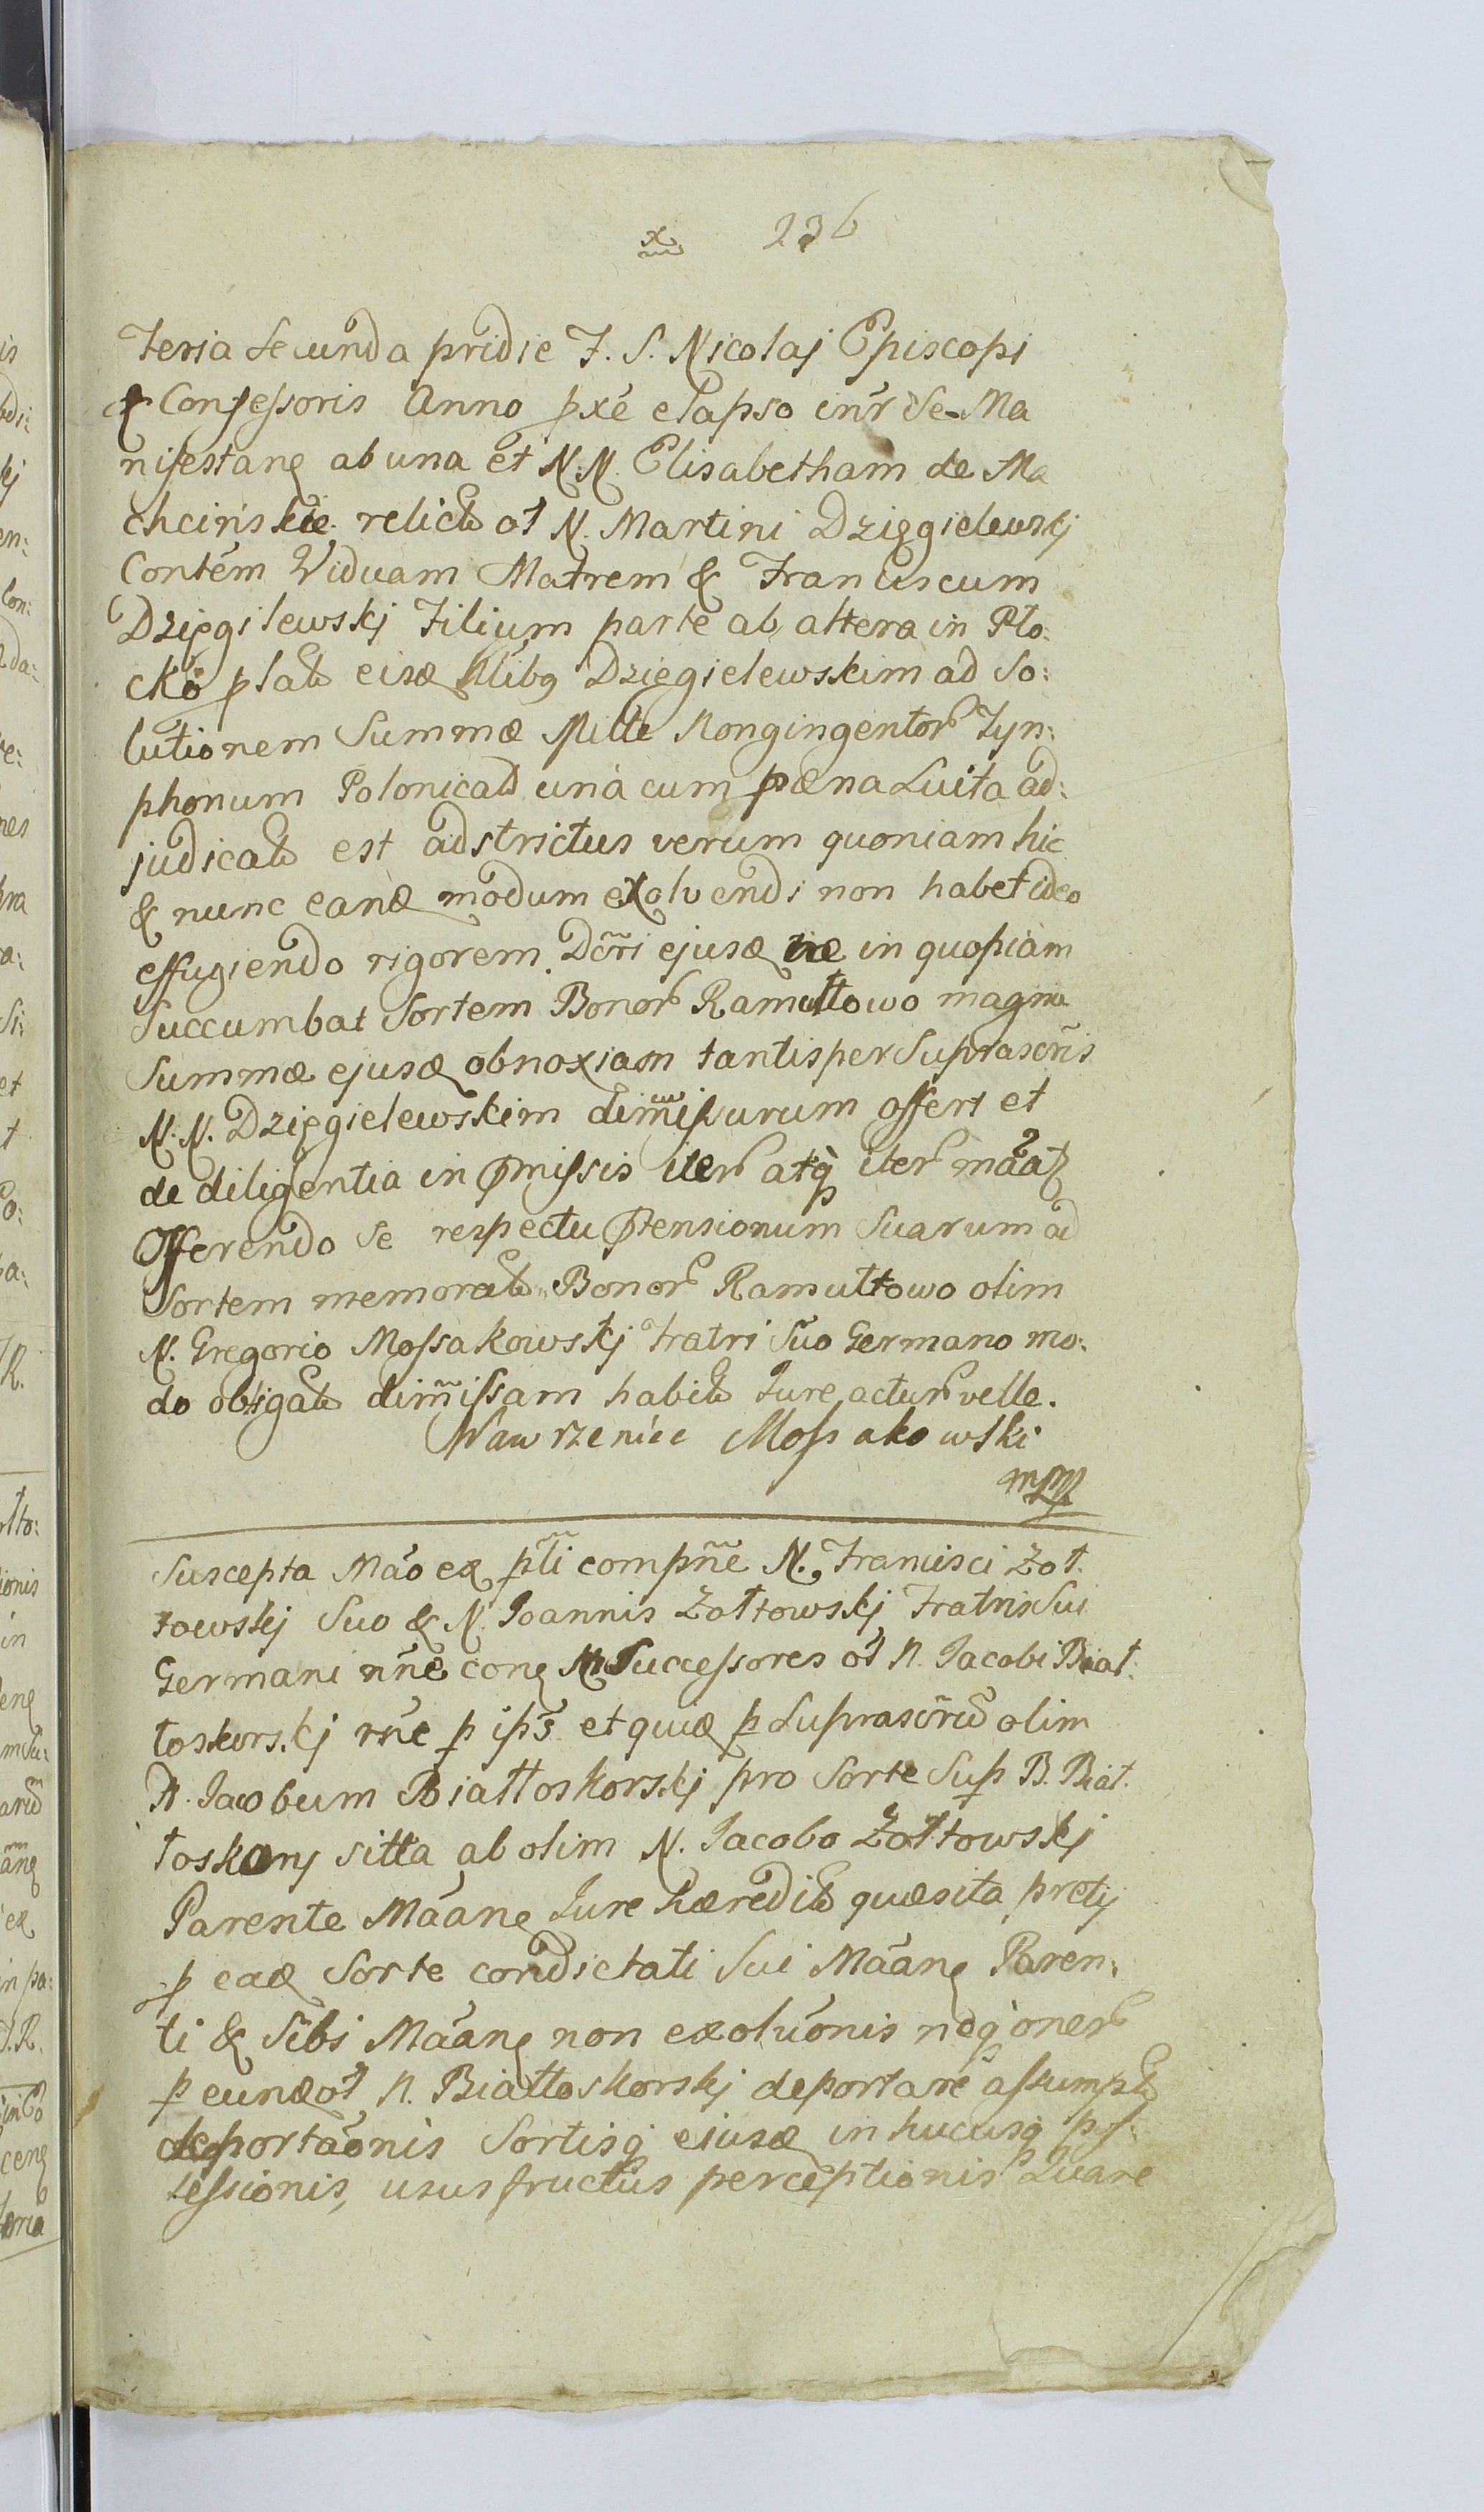 x 236
Feria Secunda pridie F. S. Nicolaj Episcopi
& Confessoris Anno pxe elapso inr Se Ma
nifestane ab una et N. N. Elisabetham de Ma
chcińskie relictā ol N. Martini Dzięgielewskj
Contem Viduam Matrem & Franciscum
Dzięgilewskj Filium parte ab altera in Plo:
cko plat eisd Nlibq Dzięgielewskim ad So:
lutionem Summæ Mille Nongingentor Tyn:
phonum Polonical unà cum pæna Luita ad:
judicat est adstrictus verum quoniam hic
& nunc eand modum exolvendi non habet ideo
effugiendo rigorem Dcri ejusd ne in quopiam
Succumbat Sortem Bonor Ramułtowo magna
Summæ ejusd obnoxiam tantisper Suprascris
N. N. Dzięgielewskim dimissurum offert et
de diligentia in pmissis iter atq iter maat
Offerendo se respectu ptensionum Suarum ad
Sortem memorat Bonor Ramułtowo olim
N. Gregorio Mossakowskj Fratri Suo Germano mo:
do obligat dimissam habit Jure actur velle.
Wawrzeniec Mossakowski
mpp
Suscepta Mao ex pti compne N. Francisci Żoł:
towskj Suo & N. Joannis Żołtowskj Fratris Sui
Germani nne cong Successores ol N. Jacobi Biał:
łoskorskj rne p ips et quid p Suprascrm olim
N. Jacobum Białłoskorskj pro Sorte Sup B. Biał:
łoskory sitta ab olim N. Jacobo Żołtowskj
Parente Maang Jure hæredit quæsita pretij
p ead Sorte condictati Sui Maang Paren:
ti & Sibi Maang non exoluonis neq oner
p eund ol N. Białłoskorskj deportare assumpt
deportaonis Sortisq eiusd in hucusq pos:
sessionis, usus fructus perceptionis Quare